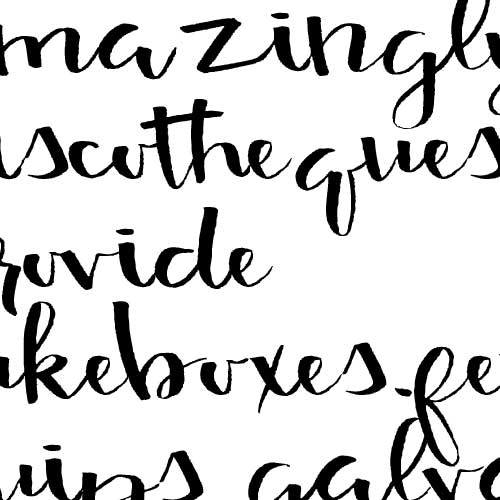 mazingly
iscotheques
rovide
ukeboxes. fe
uips galv